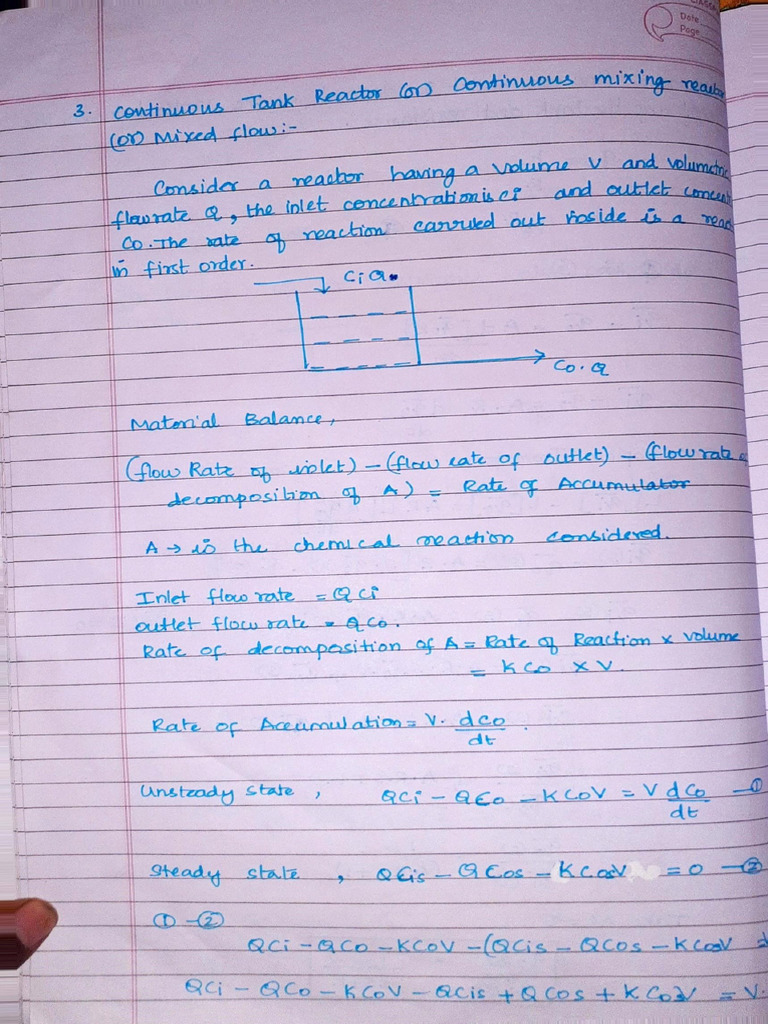 CLASS
Date
Page
3. Continuous Tank Reactor (or) Continuous mixing
(or) Mixed flow:-
Consider a reactor having a volume V and
flow rate Q, the inlet concentration is Ci and outlet
Co. The rate of reaction carried out inside is a
in first order.
Ci Q
Co. Q
Material Balance,
(flow Rate of inlet) - (flow rate of outlet) - (flow rate
decomposition of A) = Rate of Accumulator
A → is the chemical reaction considered.
Inlet flow rate = QCi
outlet flow rate = QCo.
Rate of decomposition of A = Rate of Reaction x volume
= KCo x V.
Rate of Accumulation = V. dCo/dt.
Unsteady state, QCi - QCo - KCoV = V dCo/dt —①
Steady state, QCis - QCos - KCosV = 0 —②
① - ②
QCi - QCo - KCoV - (QCis - QCos - KCosV =
QCi - QCo - KCoV - QCis + QCos + KCosV = V.